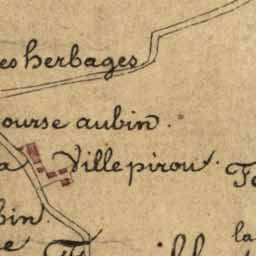 es herbages
ourse aubin.
a Ville pirou. Fo
bin.
la